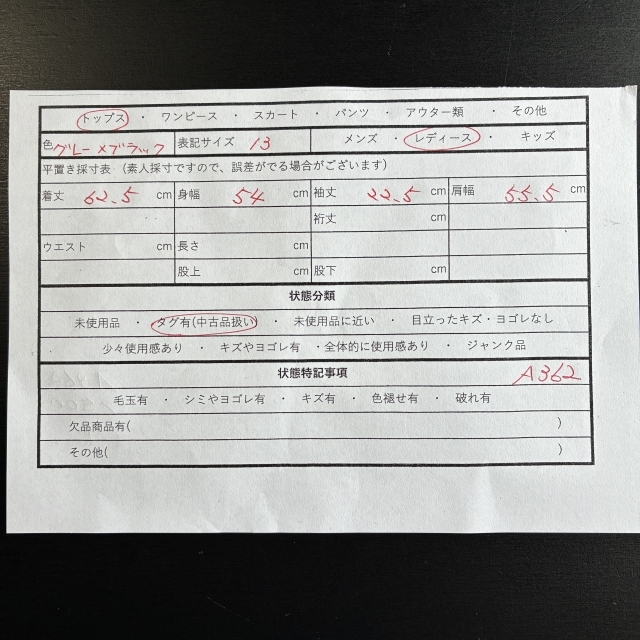 トップス ・ ワンピース ・ スカート ・ パンツ ・ アウター類 ・ その他
色 グレー×ブラック 表記サイズ 13 メンズ ・ レディース ・ キッズ
平置き採寸表 (素人採寸ですので、誤差がでる場合がございます)
着丈 62.5 cm 身幅 54 cm 袖丈 22.5 cm 肩幅 55.5 cm
裄丈 cm
ウエスト cm 長さ cm
股上 cm 股下 cm
状態分類
未使用品 ・ タグ有(中古品扱い) ・ 未使用品に近い ・ 目立ったキズ・ヨゴレなし
少々使用感あり ・ キズやヨゴレ有 ・全体的に使用感あり ・ ジャンク品
状態特記事項 A362
毛玉有 ・ シミやヨゴレ有 ・ キズ有 ・ 色褪せ有 ・ 破れ有
欠品商品有( )
その他( )